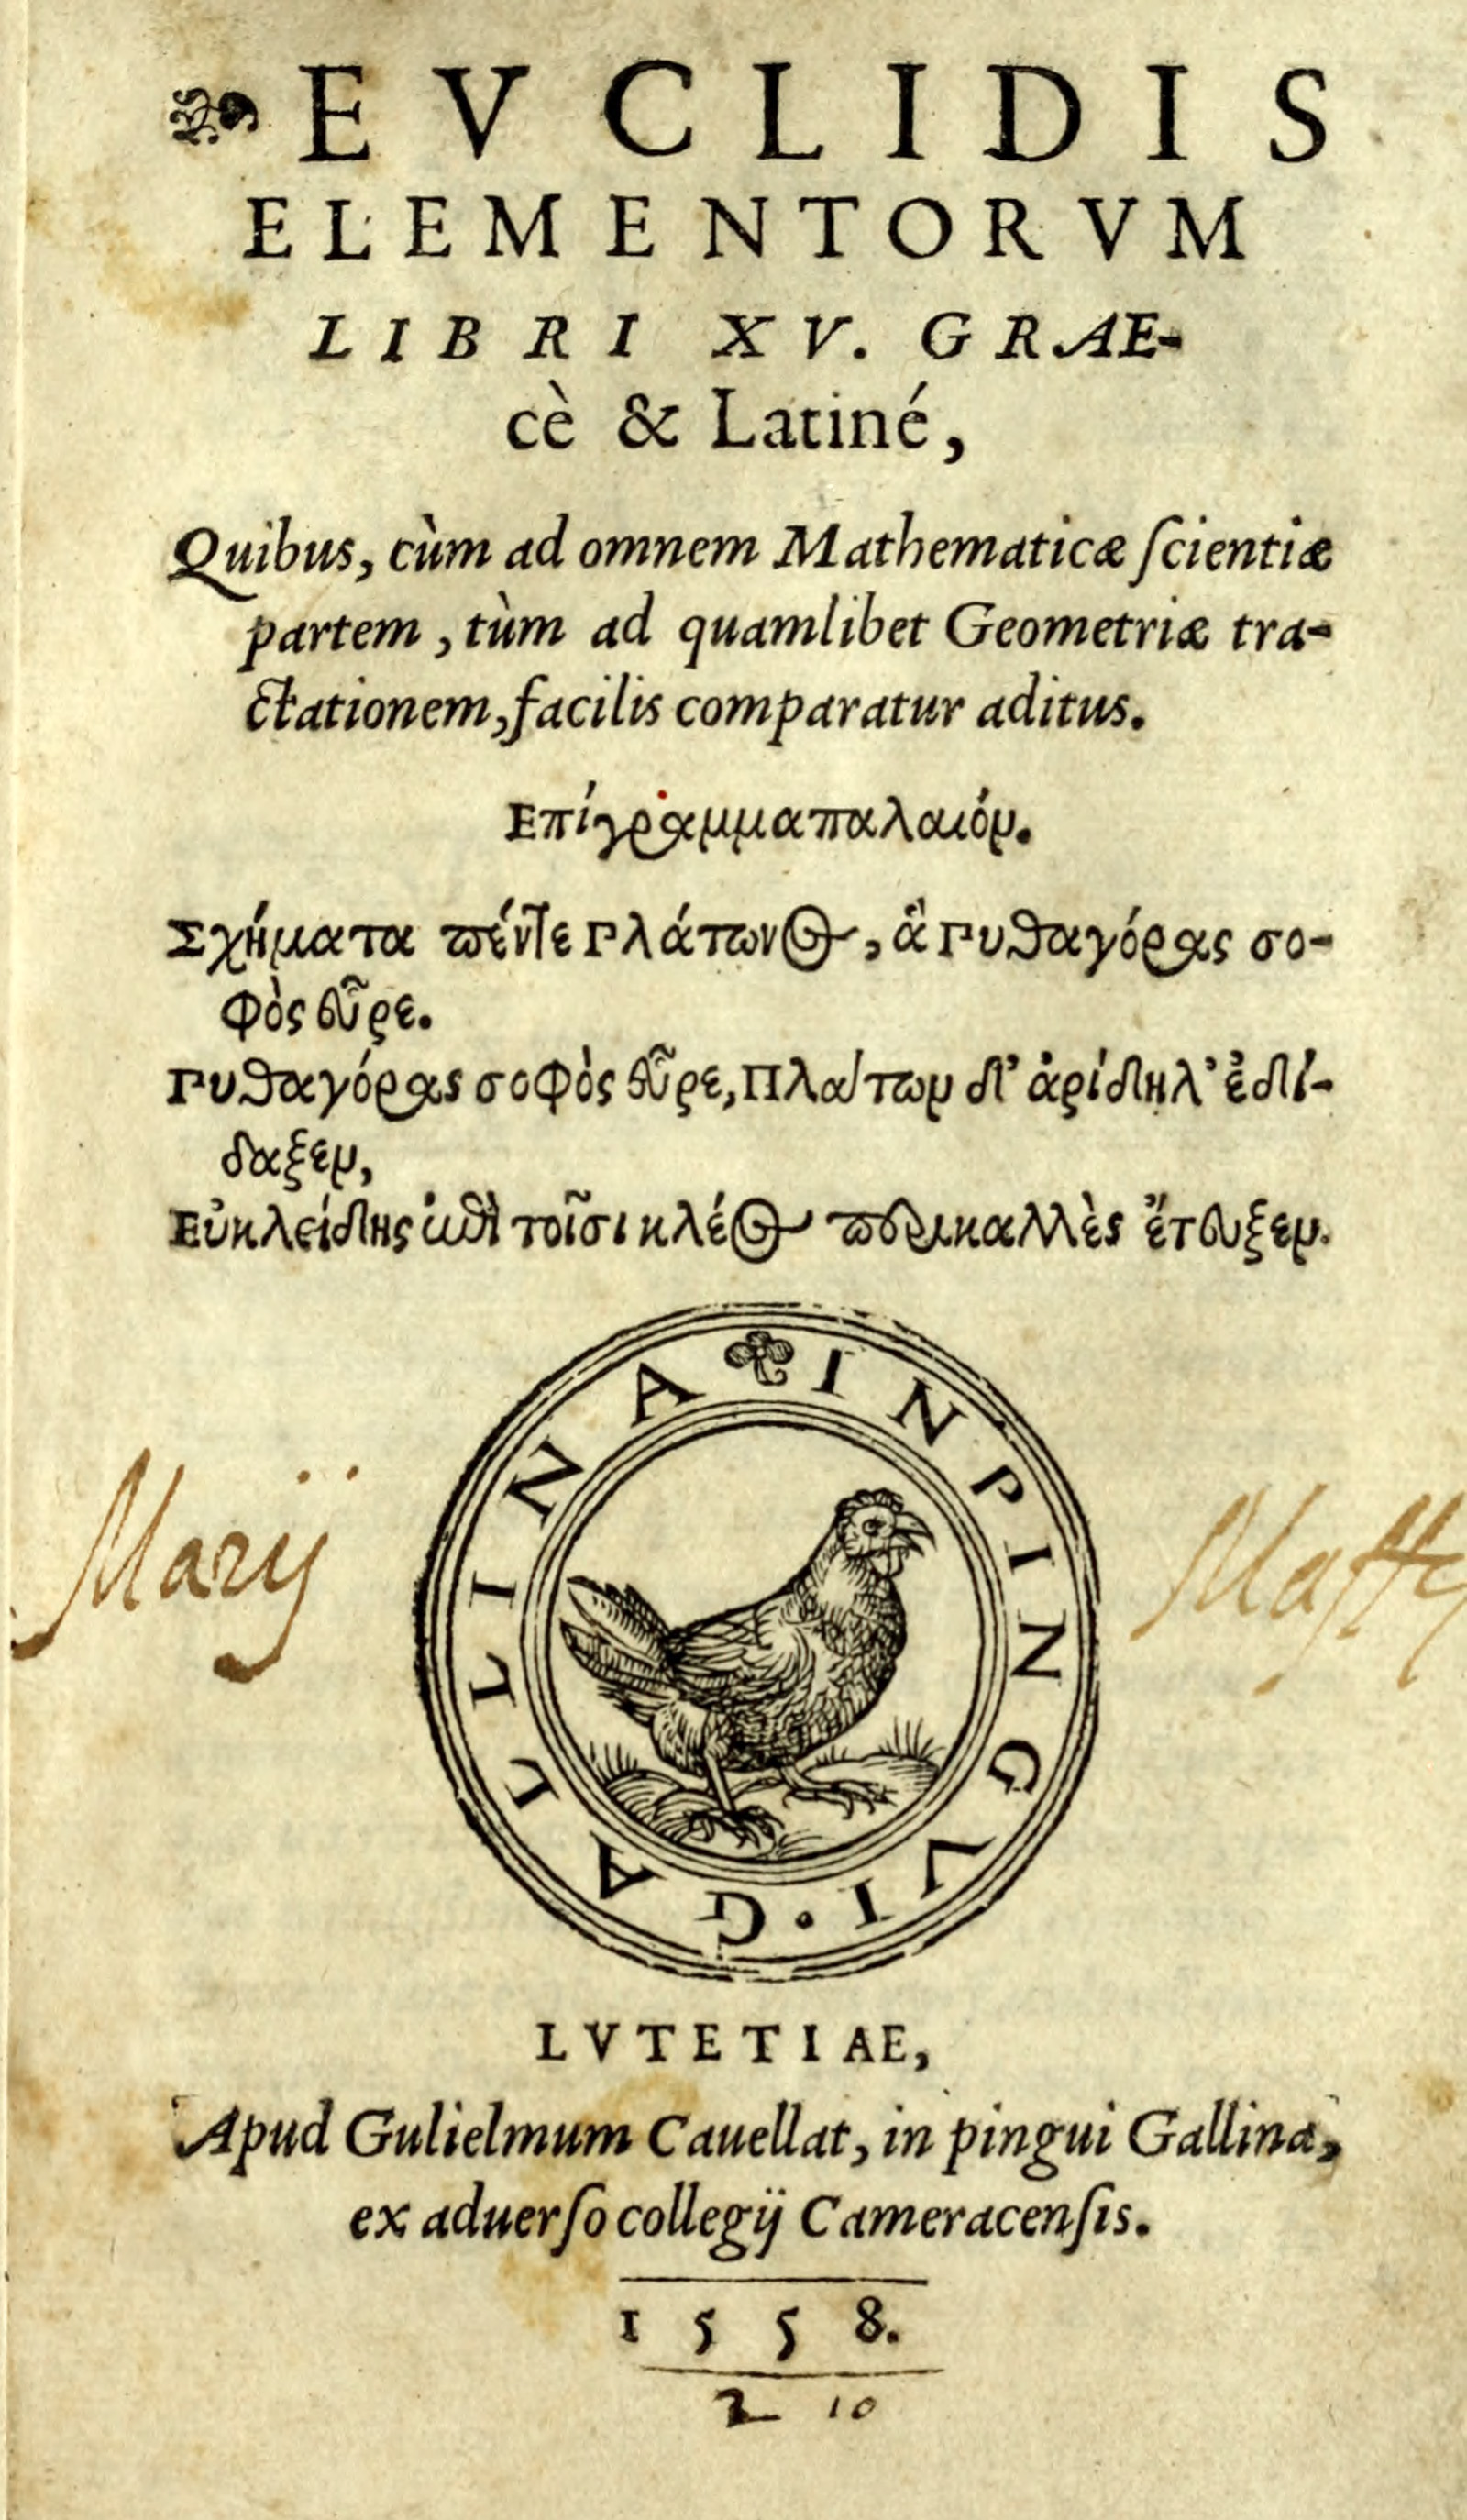 EVCLIDIS
ELEMENTORVM
LIBRI XV. GRAE-
cè & Latiné,
Quibus, cùm ad omnem Mathematicæ ſcientiæ
partem, tùm ad quamlibet Geometriæ tra-
ctationem, facilis comparatur aditus.
Επίγραμμα παλαιόν.
Σχήματα πέντε Πλάτωνος, ἃ Πυθαγόρας σο-
φὸς εὗρε.
Πυθαγόρας σοφὸς εὗρε, Πλάτων δ' ἀρίδηλ' ἐδί-
δαξεν,
Εὐκλείδης ἐπὶ τοῖσι κλέος περικαλλὲς ἔτευξεν.
IN PINGVI · GALLINA
Marij
LVTETIAE,
Apud Gulielmum Cauellat, in pingui Gallina,
ex aduerſo collegij Cameracenſis.
1558.
2 10